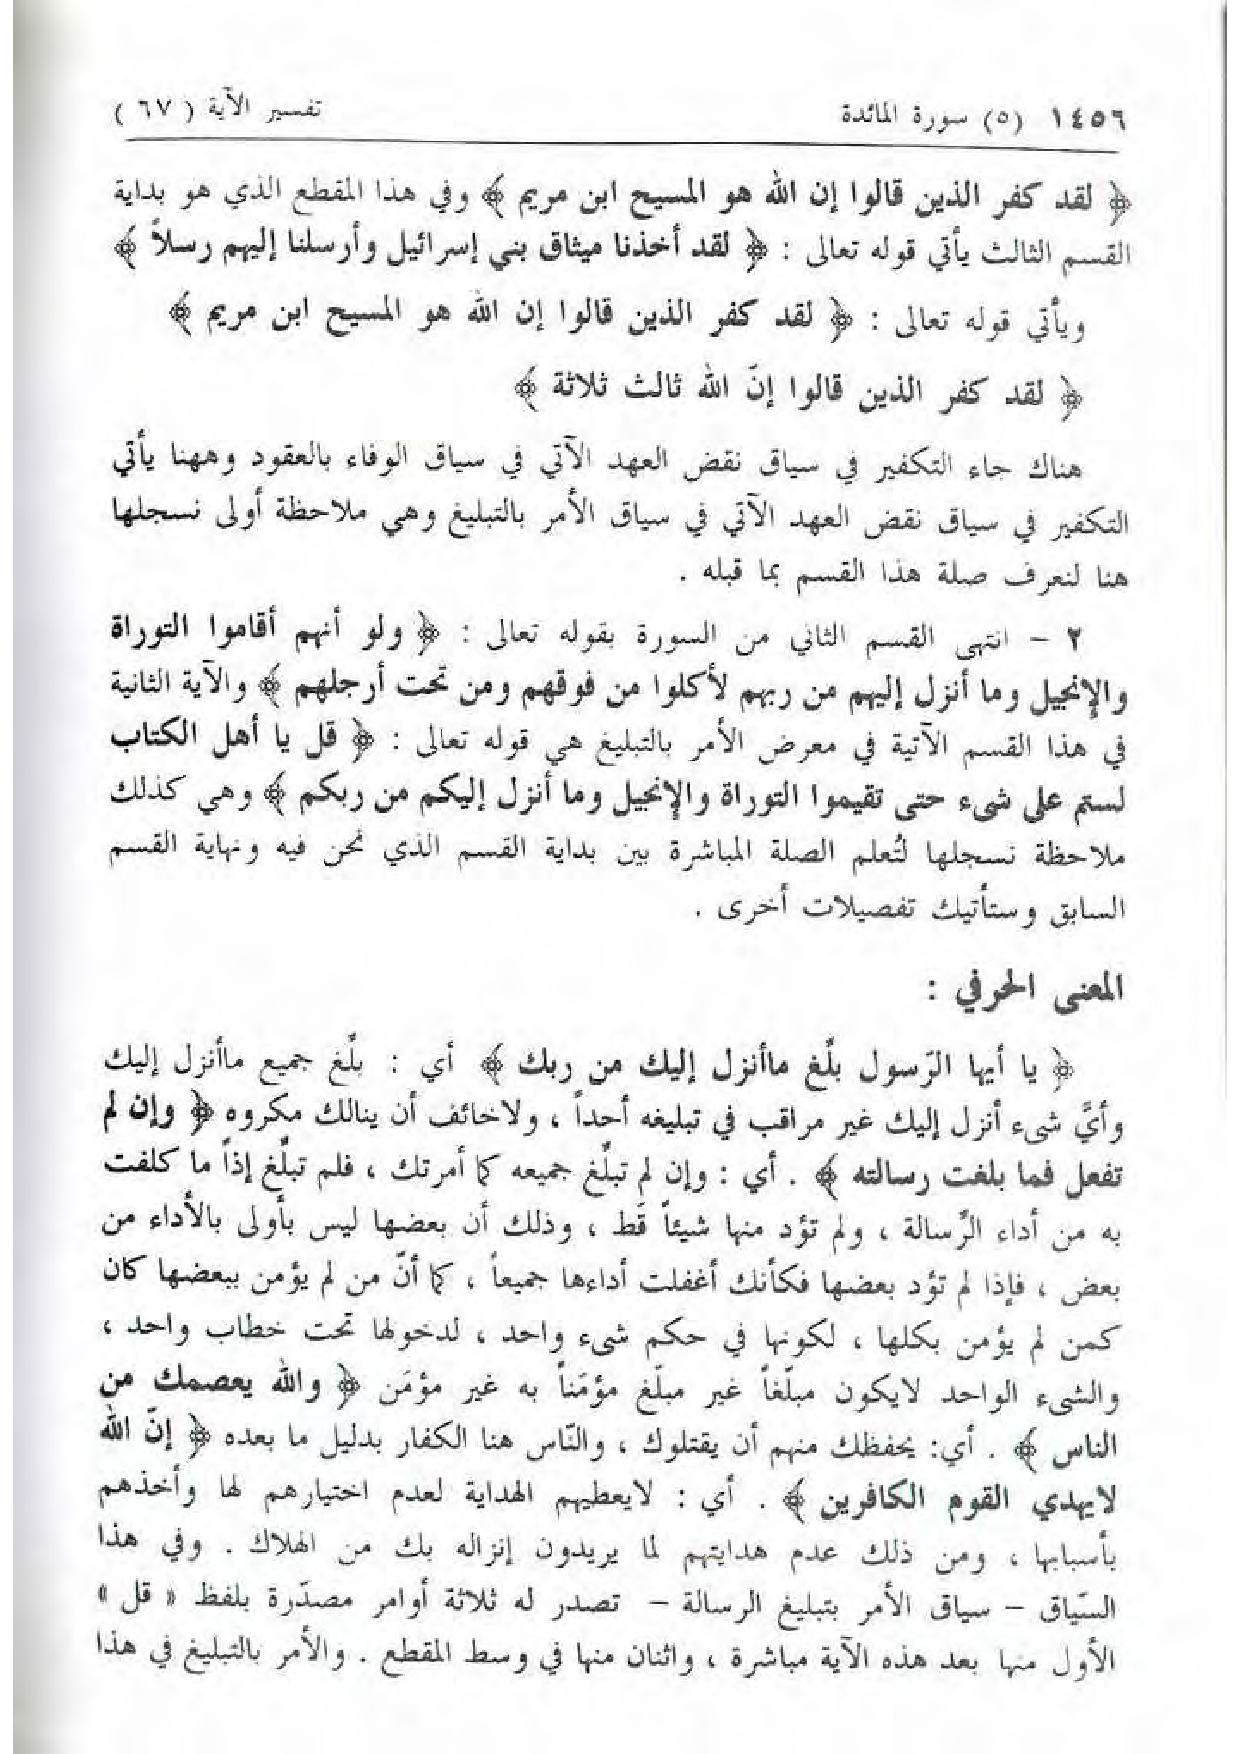 ١٤٥٦ (٥) سورة المائدة تفسير الآية ( ٦٧ )
﴿ لقد كفر الذين قالوا إن الله هو المسيح ابن مريم ﴾ وفي هذا المقطع الذي هو بداية
القسم الثالث يأتي قوله تعالى : ﴿ لقد أخذنا ميثاق بني إسرائيل وأرسلنا إليهم رسلاً ﴾
ويأتي قوله تعالى : ﴿ لقد كفر الذين قالوا إن الله هو المسيح ابن مريم ﴾
﴿ لقد كفر الذين قالوا إنّ الله ثالث ثلاثة ﴾
هناك جاء التكفير في سياق نقض العهد الآتي في سياق الوفاء بالعقود وههنا يأتي
التكفير في سياق نقض العهد الآتي في سياق الأمر بالتبليغ وهي ملاحظة أولى نسجلها
هنا لنعرف صلة هذا القسم بما قبله .
٢ - انتهى القسم الثاني من السورة بقوله تعالى : ﴿ ولو أنهم أقاموا التوراة
والإنجيل وما أنزل إليهم من ربهم لأكلوا من فوقهم ومن تحت أرجلهم ﴾ والآية الثانية
في هذا القسم الآتية في معرض الأمر بالتبليغ هي قوله تعالى : ﴿ قل يا أهل الكتاب
لستم على شىء حتى تقيموا التوراة والإنجيل وما أنزل إليكم من ربكم ﴾ وهي كذلك
ملاحظة نسجلها لتُعلم الصلة المباشرة بين بداية القسم الذي نحن فيه ونهاية القسم
السابق وستأتيك تفصيلات أخرى .
المعنى الحرفي :
﴿ يا أيها الرّسول بلّغ ماأنزل إليك من ربك ﴾ أي : بلّغ جميع ماأنزل إليك
وأيَّ شىء أنزل إليك غير مراقب في تبليغه أحداً ، ولاخائف أن ينالك مكروه ﴿ وإن لم
تفعل فما بلغت رسالته ﴾ . أي : وإن لم تبلّغ جميعه كما أمرتك ، فلم تبلّغ إذاً ما كلفت
به من أداء الرّسالة ، ولم تؤد منها شيئاً قَط ، وذلك أن بعضها ليس بأولى بالأداء من
بعض ، فإذا لم تؤد بعضها فكأنك أغفلت أداءها جميعاً ، كما أنّ من لم يؤمن ببعضها كان
كمن لم يؤمن بكلها ، لكونها في حكم شىء واحد ، لدخولها تحت خطاب واحد ،
والشىء الواحد لايكون مبلّغاً غير مبلّغ مؤمَناً به غير مؤمَن ﴿ والله يعصمك من
الناس ﴾ . أي: يحفظك منهم أن يقتلوك ، والنّاس هنا الكفار بدليل ما بعده ﴿ إنّ الله
لايهدي القوم الكافرين ﴾ . أي : لايعطيهم الهداية لعدم اختيارهم لها وأخذهم
بأسبابها ، ومن ذلك عدم هدايتهم لما يريدون إنزاله بك من الهلاك . وفي هذا
السّياق - سياق الأمر بتبليغ الرسالة - تصدر له ثلاثة أوامر مصدّرة بلفظ « قل »
الأول منها بعد هذه الآية مباشرة ، واثنان منها في وسط المقطع . والأمر بالتبليغ في هذا